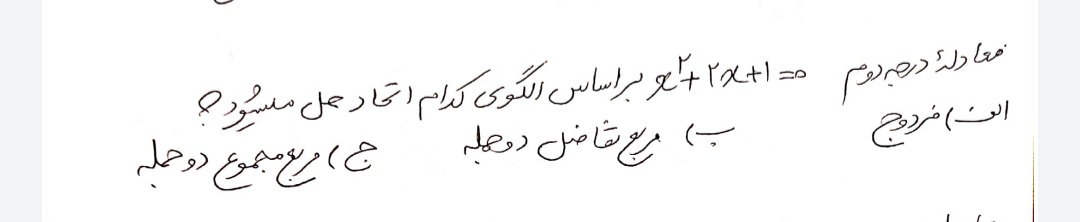 معادلهٔ درجه دوم x²+۲x+۱=۰ براساس الگوی کدام اتحاد حل میشود؟
الف) مزدوج ب) مربع تفاضل دوجمله ج) مربع مجموع دوجمله